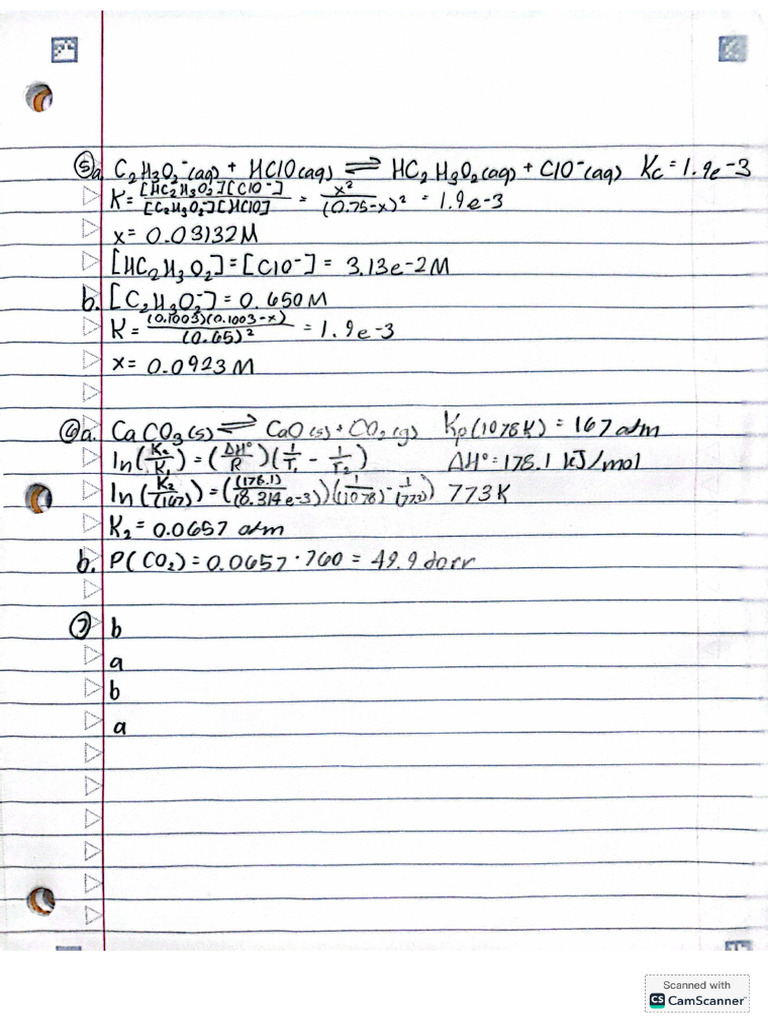 ⑤a. C₂H₃O₂⁻(aq) + HClO(aq) ⇌ HC₂H₃O₂(aq) + ClO⁻(aq) Kc = 1.9e-3
K = [HC₂H₃O₂][ClO⁻] / [C₂H₃O₂][HClO] = x² / (0.75-x)² = 1.9e-3
x = 0.03132M
[HC₂H₃O₂] = [ClO⁻] = 3.13e-2M
b. [C₂H₃O₂⁻] = 0.650M
K = (0.1003)(0.1003-x) / (0.65)² = 1.9e-3
x = 0.0923M
⑥a. CaCO₃(s) ⇌ CaO(s) + CO₂(g) Kp(1078K) = 167 atm
ln(K₂/K₁) = (ΔH°/R)(1/T₁ - 1/T₂) ΔH° = 178.1 kJ/mol
ln(K₂/(167)) = ((178.1)/(8.314e-3))(1/(1078) - 1/(773)) 773K
K₂ = 0.0657 atm
b. P(CO₂) = 0.0657 · 760 = 49.9 torr
⑦ b
a
b
a
Scanned with
CS CamScanner